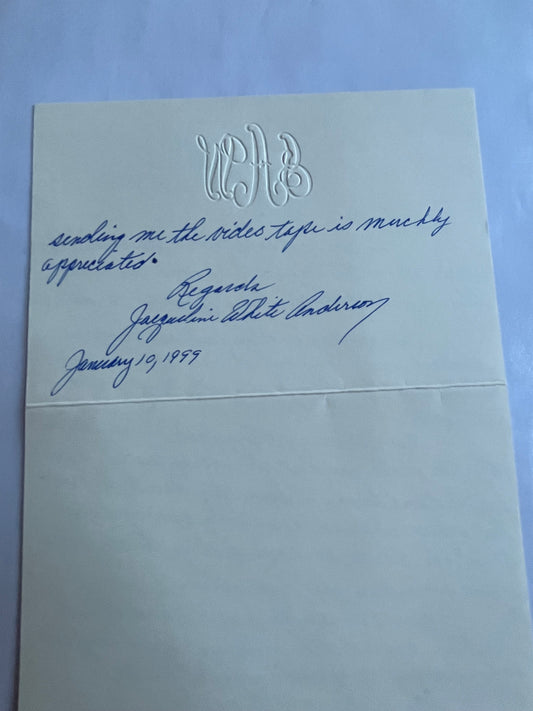 sending me the video tape is muchly
appreciated.
Regards
Jacqueline White Anderson
January 10, 1999